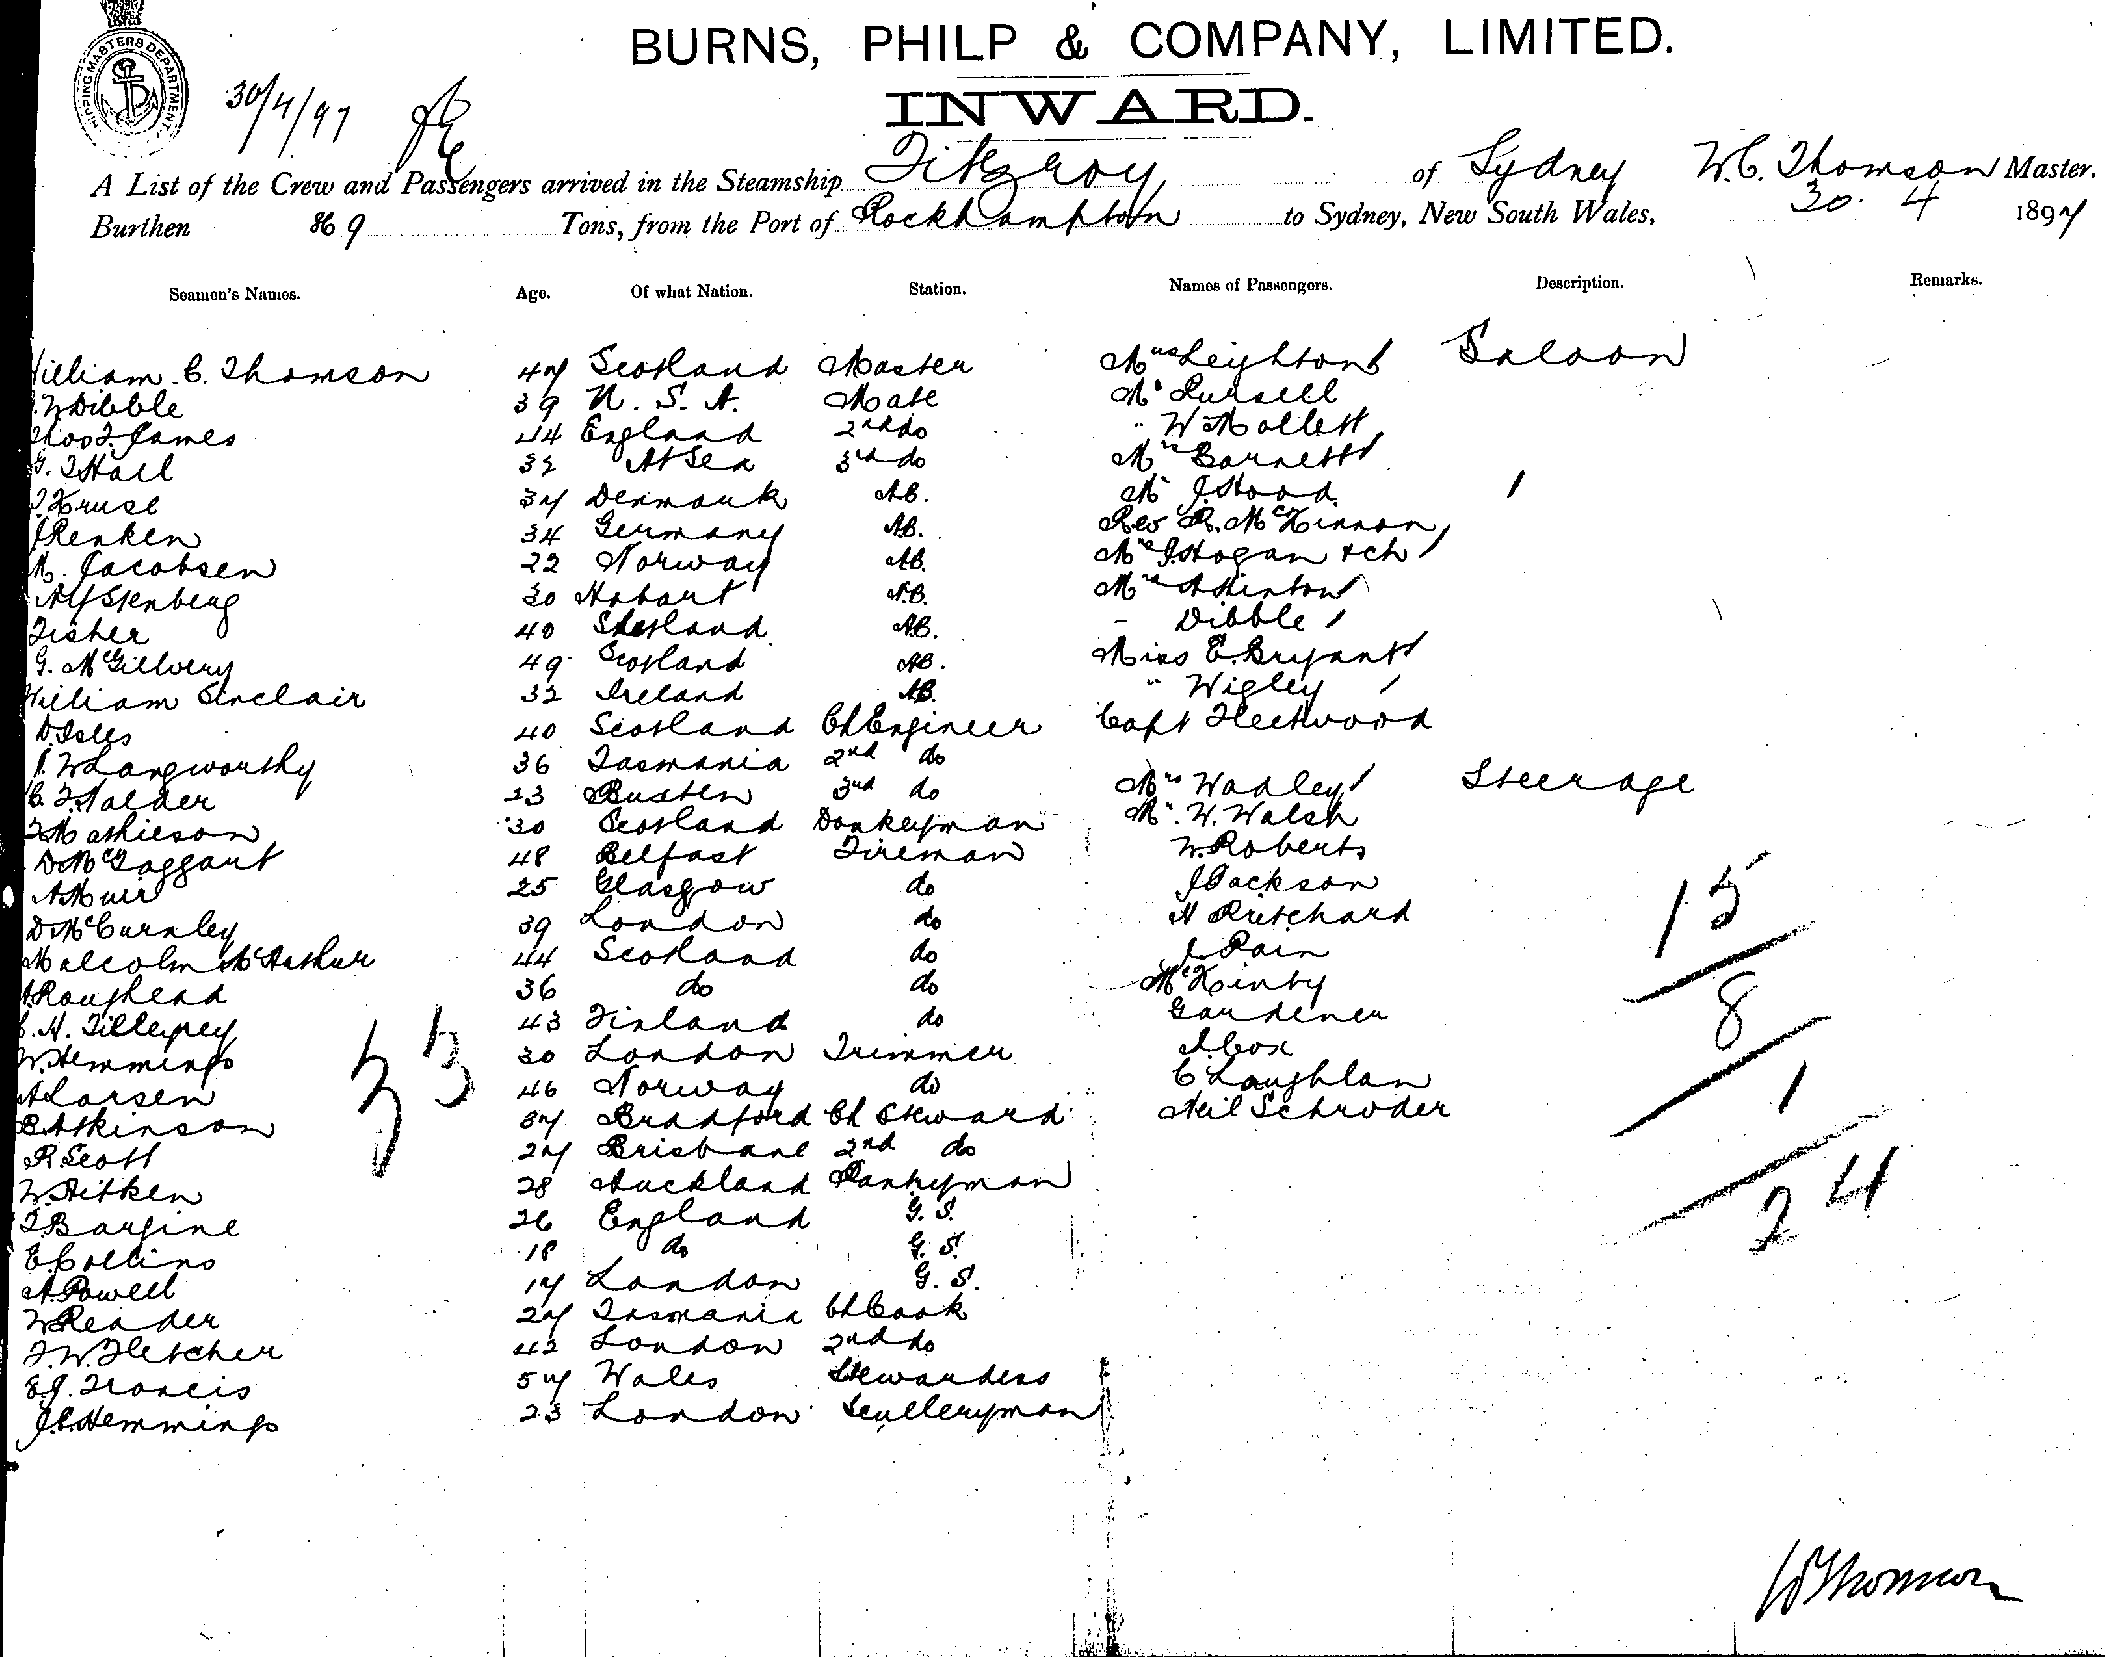 BURNS, PHILP & COMPANY, LIMITED.
INWARD.
SHIPPING MASTERS DEPARTMENT
30/4/97
A List of the Crew and Passengers arrived in the Steamship Fitzroy of Sydney W. C. Thomson Master.
Burthen 869 Tons, from the Port of Rockhampton to Sydney, New South Wales, 30. 4 1897
Seamen's Names. Age. Of what Nation. Station. Names of Passengers. Description. Remarks.
William C. Thomson 47 Scotland Master Mrs Leighton Saloon
W Dibble 39 U. S. A. Mate Mr Pursell
Thos F. James 44 England 2nd do " W Mollett
G. T Hall 32 At Sea 3rd do Mrs Barnett
Kruse 37 Denmark AB. Mr J. Hood
J Renken 34 Germany AB. Rev R. McKinnon
M. Jacobsen 22 Norway AB. Mrs J. Hogan + ch
Alf Stenberg 30 Hobart A.B. Mrs A Hinton
Fisher 40 Shetland AB. - Dibble
G. McGillvery 49 Scotland AB. Miss E. Bryant
William Sinclair 32 Ireland AB. " Wigley
D. Isles 40 Scotland Ch Engineer Capt Fleetwood
W Langworthy 36 Tasmania 2nd do
C. F. Nalder 23 Buxten 3rd do Mrs Wadley Steerage
Mathieson 30 Scotland Donkeyman Mr. W. Walsh
D McTaggart 48 Belfast Fireman W. Roberts
A Muir 25 Glasgow do J Jackson
D McCurnley 39 London do H Pritchard
Malcolm McArthur 44 Scotland do J. Pain
A Roughead 36 do do McKinty
C. H. Tilleyrey 43 Finland do Gardener
W. Hemmings 30 London Trimmer J. Cox
A Larsen 46 Norway do C Laughlan
B Atkinson 37 Bradford Ch Steward Neil Schroder
R Scott 27 Brisbane 2nd do
W. Aitken 28 Auckland Pantryman
T. Bargine 26 England G. S.
E. Collins 18 do G. S.
A. Powell 17 London G. S.
W Reader 27 Tasmania Ch Cook
F. W. Fletcher 42 London 2nd do
E. J. Francis 57 Wales Stewardess
J. C. Hemmings 23 London Sculleryman
33
15
8
1
24
W Thomson